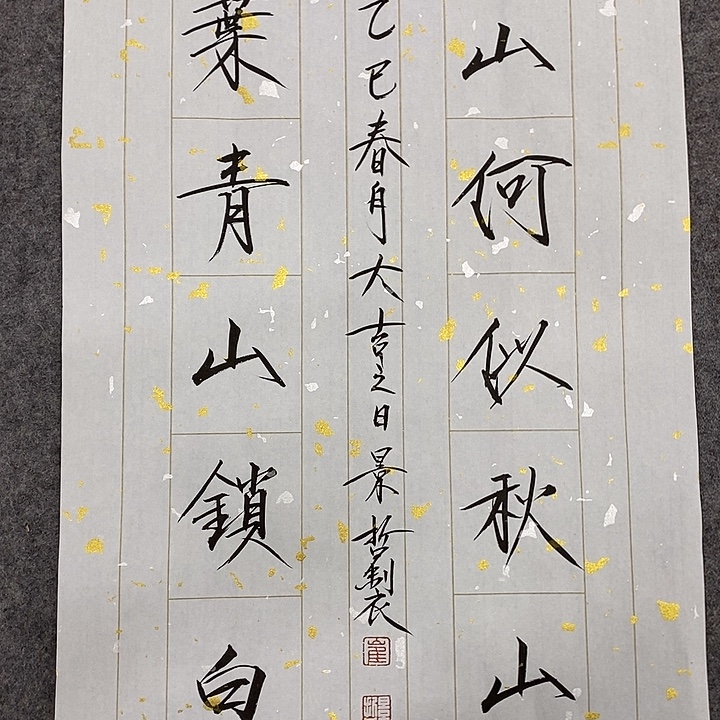 山何似秋山
乙巳春月大吉之日景哲製
葉青山鎖白
崔